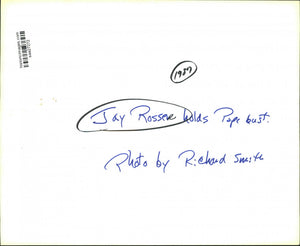 (1987)
Jay Rosser holds Pope bust.
Photo by Richard Smith